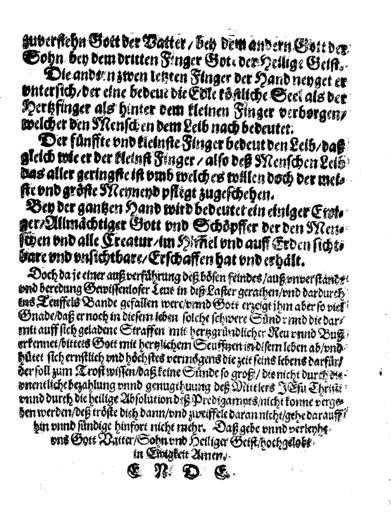 zuverstehn Gott der Vatter / bey dem andern Gott der
Sohn / bey dem dritten Finger Gott der Heilige Geist.
Die andern zwen letzten Finger der Hand neyget er
vntersich / der eine bedeut die Edle köstliche Seel als der
Hertzfinger als hinter dem kleinen Finger verborgen /
welcher den Menschen dem Leib nach bedeutet.
Der fünffte vnd kleinste Finger bedeut den Leib / daß
gleich wie er der kleinst Finger / also deß Menschen Leib
das aller geringste ist vmb welches willen doch der mei-
ste vnd gröste Meyneyd pflegt zugeschehen.
Bey der gantzen Hand wird bedeutet ein einiger Ewi-
ger / Allmächtiger Gott vnd Schöpffer der den Men-
schen vnd alle Creatur / im Himel vnd auff Erden sicht-
bare vnd vnsichtbare / Erschaffen hat vnd erhält.
Doch da je einer auß verführung deß bösen feindes / auß vnverstande
vnd beredung Gewissenloser Leut in diß Laster gerathen / vnd dardurch
ins Teuffels Bande gefallen were / vnnd Gott erzeigt ihm aber so viel
Gnade / daß er noch in diesem leben solche schwere Sünd vnnd die dar-
mit auff sich geladene Straffen mit hertzgründlicher Reu vnnd Buß
erkennet / bittets Gott mit hertzlichem Seufftzen in disem leben ab / vnd
hütet sich ernstlich vnd höchstes vermögens die zeit seins lebens darfür /
der soll zum Trost wissen / daß keine Sünd so groß / die nicht durch die
vnentliche bezahlung vnnd genugthuung deß Mittlers JEsu Christi
vnnd durch die heilige Absolution deß Predigampts / nicht könne verge-
ben werden / deß tröste dich dann / vnd zweiffele daran nicht / gehe darauff
hin vnnd sündige hinfort nicht mehr. Daß gebe vnnd verleyhe
vns Gott Vatter / Sohn vnd Heiliger Geist / hochgelobt
in Ewigkeit Amen.
E N D E.